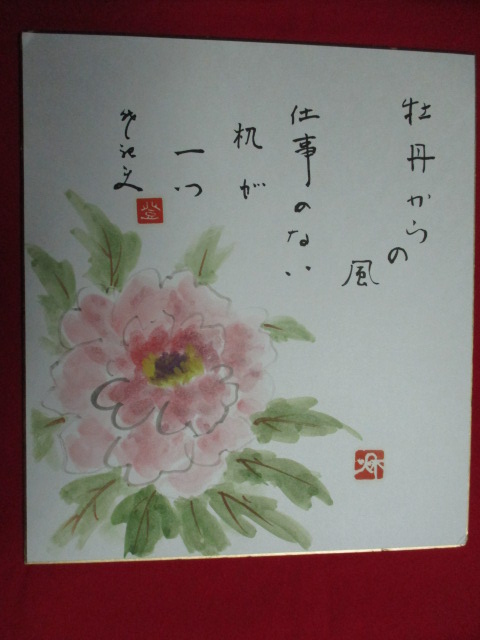 牡丹からの
風
仕事のない
机が
一つ